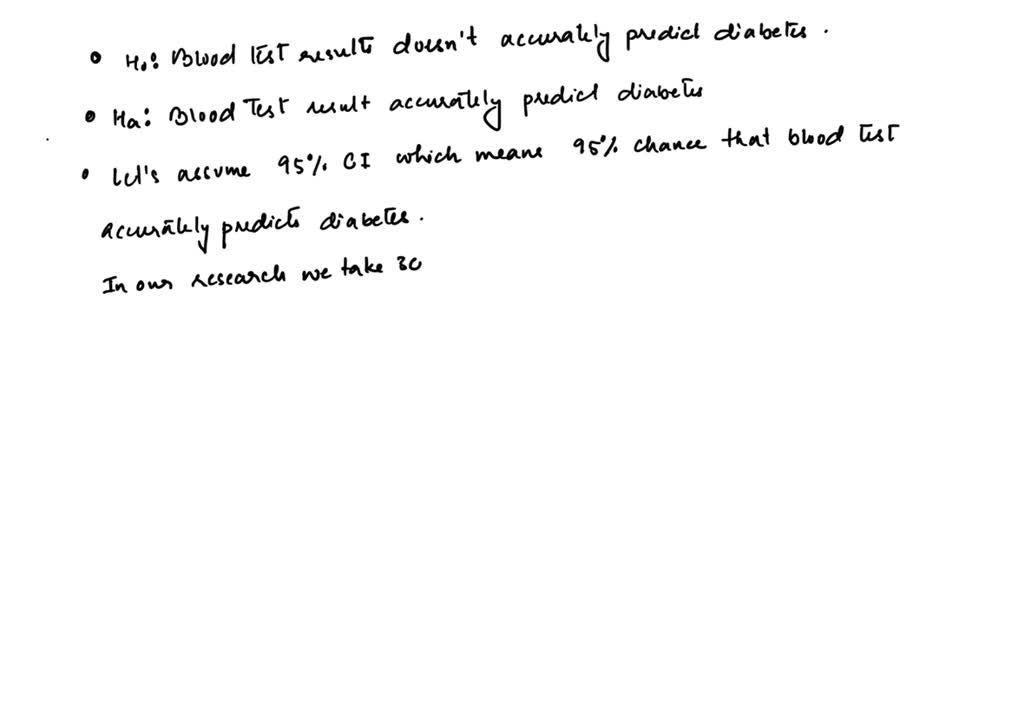 • H₀: Blood Test results doesn't accurately predict diabetes.
• Ha: Blood Test result accurately predict diabetes
• Let's assume 95% CI which means 95% chance that blood test
accurately predicts diabetes.
In our research we take 30